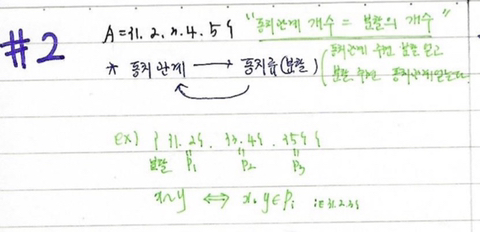 #2
A={1, 2, 3, 4, 5} "동치관계 개수 = 분할의 개수"
* 동치관계 → 동치류(분할) (동치관계 주면 분할 얻고
분할 주면 동치관계 얻는다.
ex) { {1, 2}, {3, 4}, {5} }
분할 P₁ P₂ P₃
x~y ⟺ x, y ∈ Pᵢ i∈{1, 2, 3}